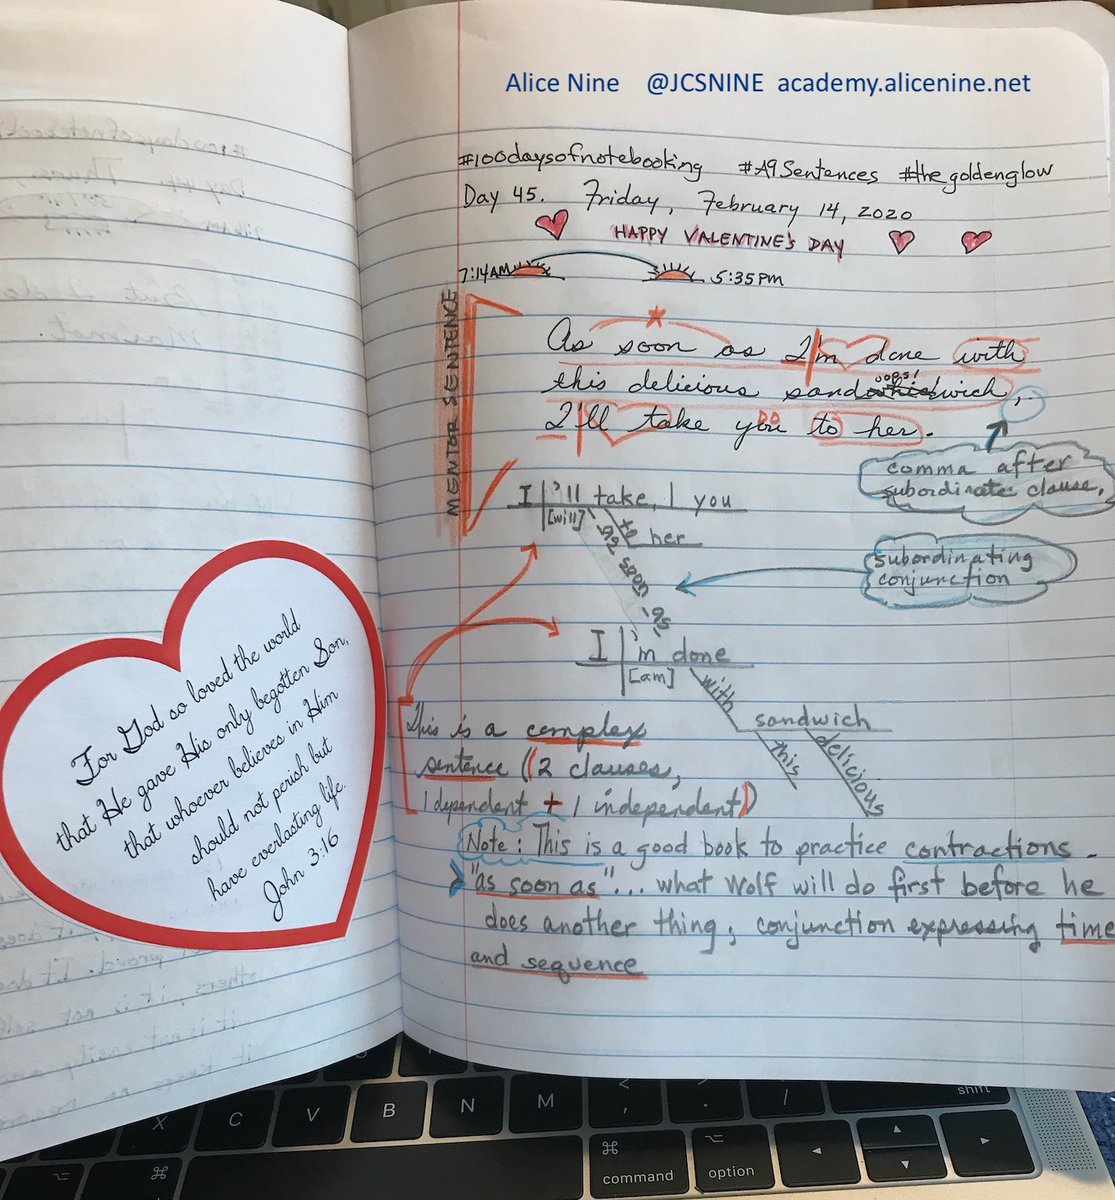 Alice Nine @JCSNINE academy.alicenine.net
#100daysofnotebooking #A9Sentences #the goldenglow
Day 45. Friday, February 14, 2020
HAPPY VALENTINE'S DAY
7:14AM 5:35PM
MENTOR SENTENCE
As soon as I'm done with
oops!
this delicious sandwich,
I'll take you to her.
DO
comma after
subordinate clause.
I 'll take, you
[will] to her
as soon as
subordinating
conjunction
I 'm done
[am] with
sandwich
this delicious
This is a complex
sentence (2 clauses,
1 dependent + 1 independent)
Note: This is a good book to practice contractions.
"as soon as"... what Wolf will do first before he
does another thing; conjunction expressing time
and sequence
For God so loved the world
that He gave His only begotten Son,
that whoever believes in Him
should not perish but
have everlasting life.
John 3:16
X C V B N M < , > . / shift
⌘ command ⌥ option